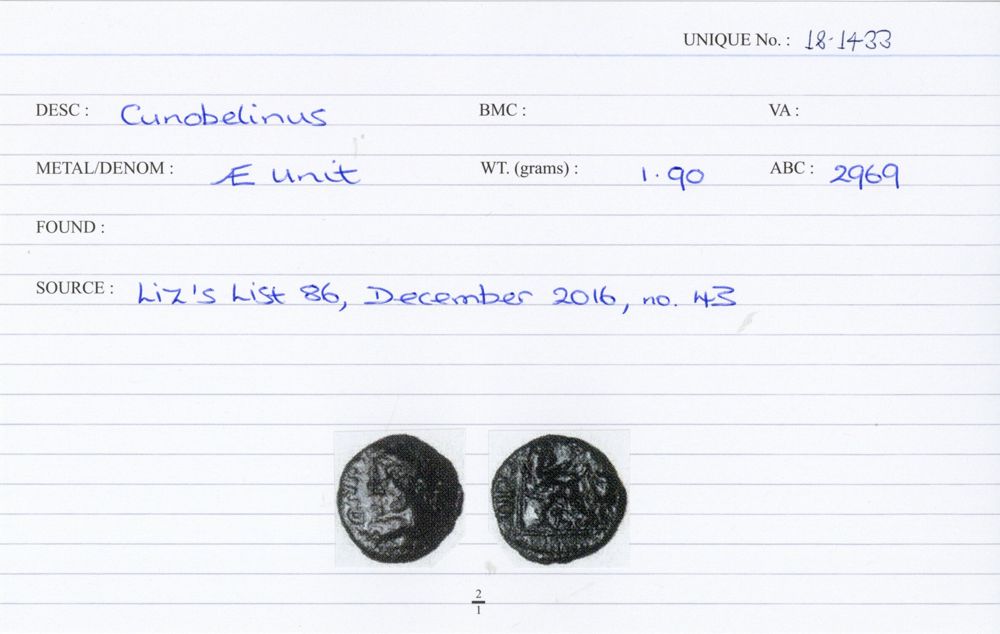 UNIQUE No. : 18·1433
DESC : Cunobelinus BMC : VA :
METAL/DENOM : Æ unit WT. (grams) : 1.90 ABC : 2969
FOUND :
SOURCE : Liz's List 86, December 2016, no. 43
2
1